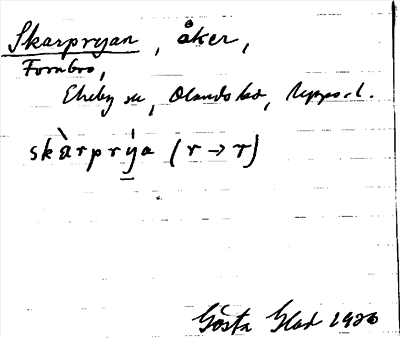 Skarpryan, åker,
Fornbro,
Ekeby sn, Olands hd, Upps. l.
skàrprýa (r → r)
Gösta Glad 1920